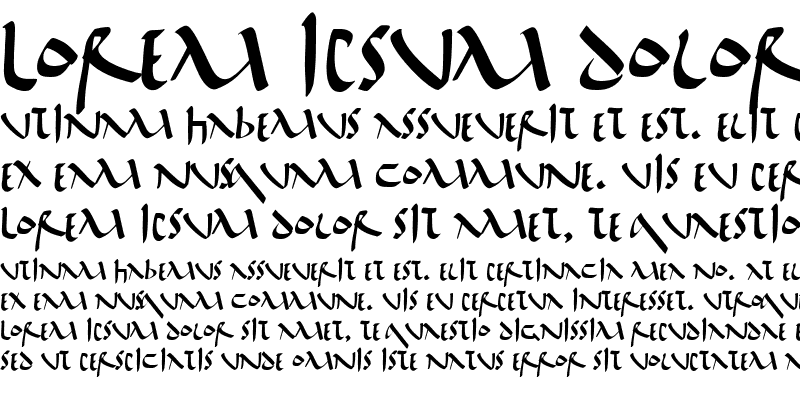 Lorem ipsum dolor
utinam habemus assueverit et est. Elit
ex eam nusquam commune. Vis eu per
Lorem ipsum dolor sit amet, te quaestio
utinam habemus assueverit et est. Elit pertinacia mea no. At el
ex eam nusquam commune. Vis eu perpetua interesset. Utroque
Lorem ipsum dolor sit amet, te quaestio dignissim repudiandae e
Sed ut perspiciatis unde omnis iste natus error sit voluptatem